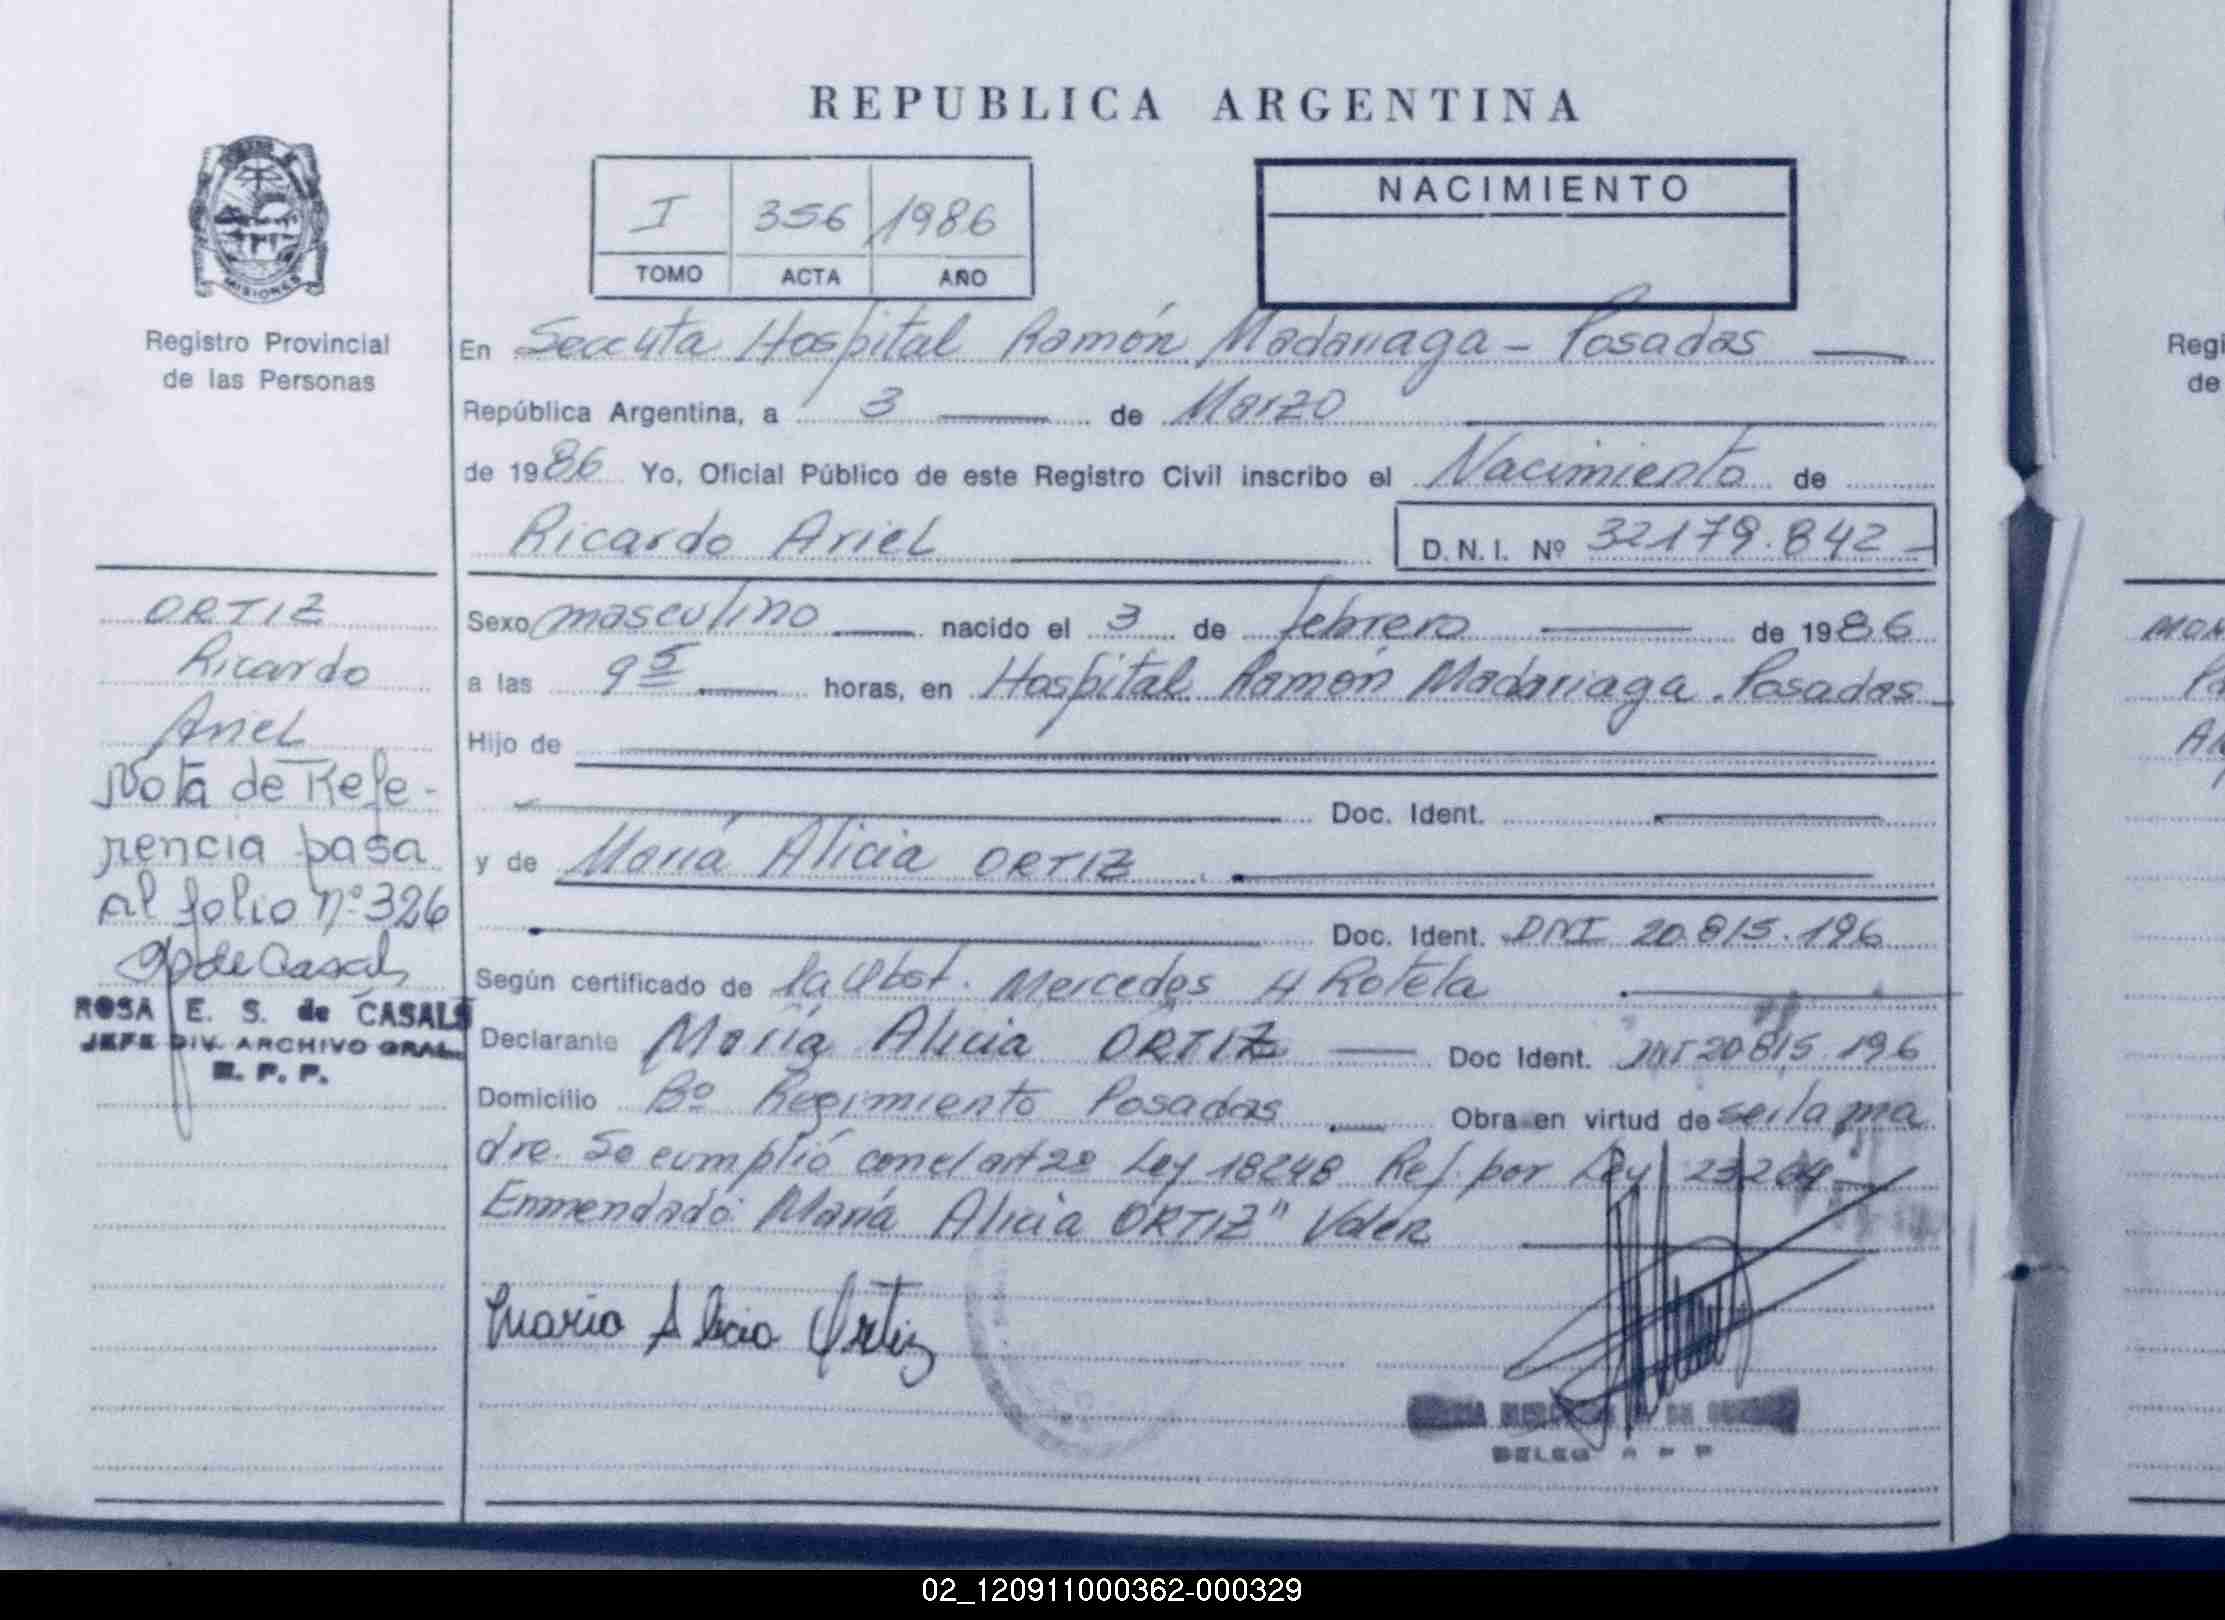 REPUBLICA ARGENTINA
MISIONES
Registro Provincial
de las Personas
I 356 1986
TOMO ACTA AÑO
NACIMIENTO
En Hospital Ramón Madariaga - Posadas
República Argentina, a 3 de Marzo
de 1986 Yo, Oficial Público de este Registro Civil inscribo el Nacimiento de
Ricardo Ariel D.N.I. Nº 32179.842
Sexo masculino nacido el 3 de febrero de 1986
a las 9 5 horas, en Hospital Ramón Madariaga. Posadas
Hijo de
Doc. Ident.
y de María Alicia ORTIZ
Doc. Ident. DNI 20.815.196
Según certificado de la Obst. Mercedes H Rotela
Declarante María Alicia ORTIZ Doc Ident. DNI 20815.196
Domicilio Bº Regimiento Posadas Obra en virtud de ser la ma
dre. Se cumplió con el art 2º Ley 18248 Ref. por Ley 23264
Enmendado: María Alicia ORTIZ" Valen
Maria Alicia Ortiz
ORTIZ
Ricardo
Ariel
Nota de Refe-
rencia pasa
al folio nº 326
de Casals
ROSA E. S. de CASALS
JEFE DIV. ARCHIVO GRAL.
R. P. P.
Regi
de
MON
02_120911000362-000329